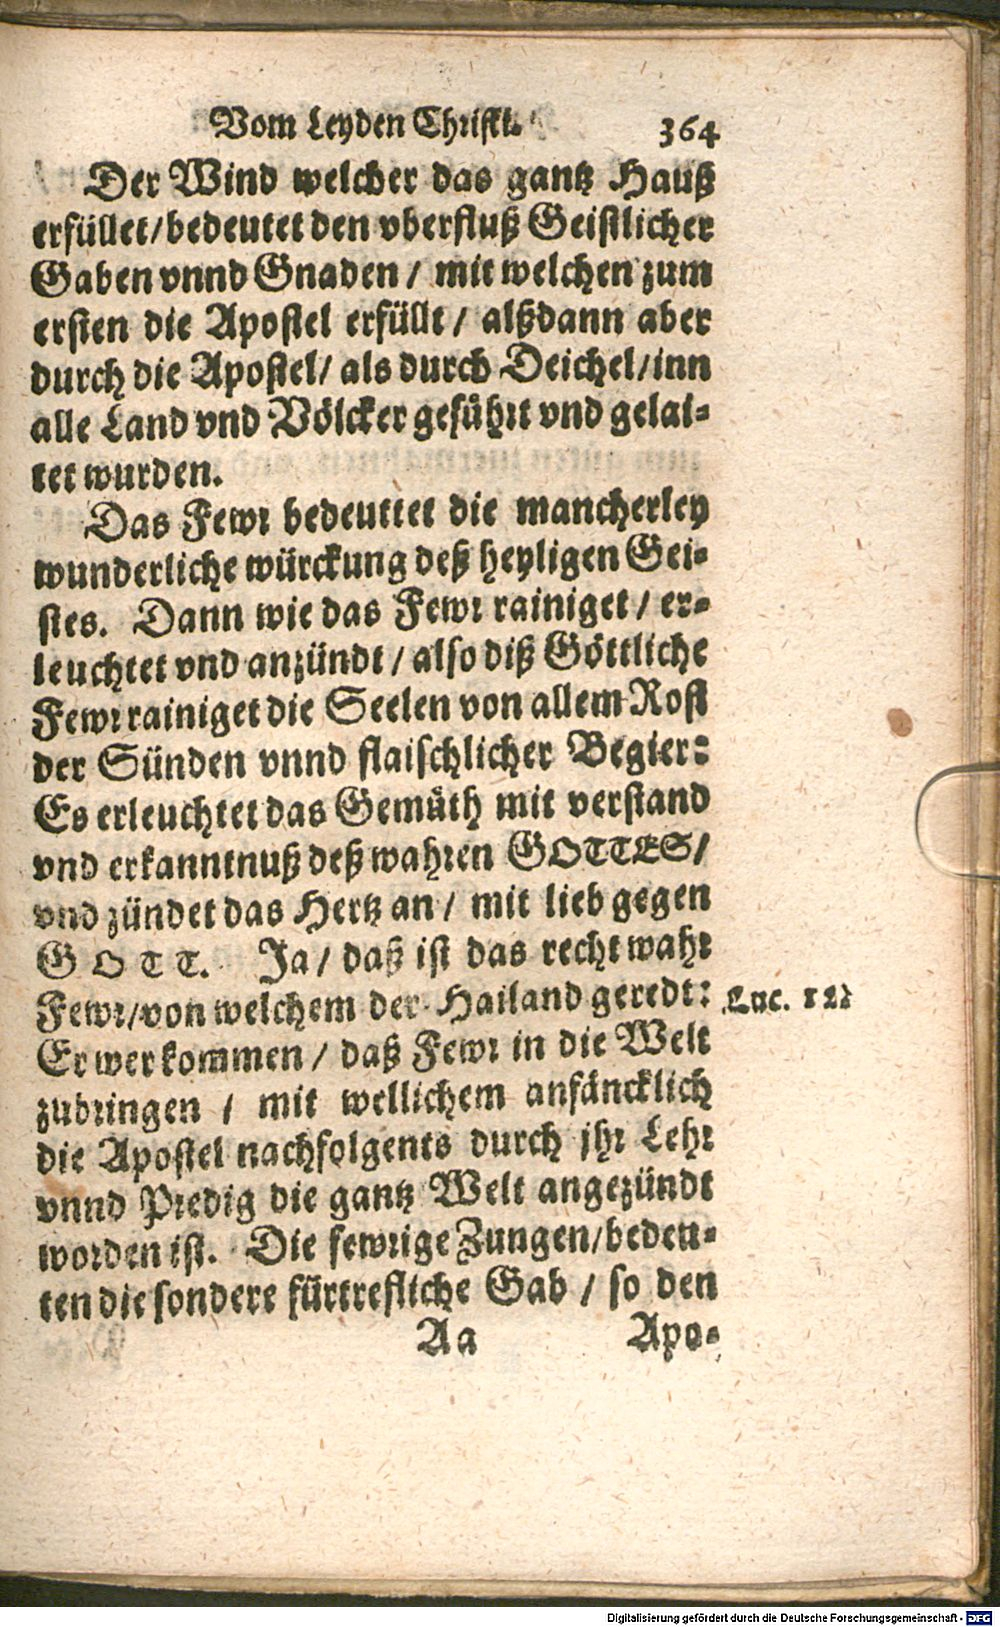 Vom Leyden Christi. 364
Der Wind welcher das gantz Hauß
erfüllet/bedeutet den vberfluß Geistlicher
Gaben vnnd Gnaden / mit welchen zum
ersten die Apostel erfüllt / alßdann aber
durch die Apostel/ als durch Deichel/inn
alle Land vnd Völcker geführt vnd gelai-
tet wurden.
Das Fewr bedeuttet die mancherley
wunderliche würckung deß heyligen Gei-
stes. Dann wie das Fewr rainiget / er-
leuchtet vnd anzündt / also diß Göttliche
Fewr rainiget die Seelen von allem Rost
der Sünden vnnd flaischlicher Begier:
Es erleuchtet das Gemüth mit verstand
vnd erkanntnuß deß wahren GOTTES/
vnd zündet das Hertz an / mit lieb gegen
GOTT. Ja / daß ist das recht wahr
Fewr/von welchem der Hailand geredt: Luc. 12
Er wer kommen / daß Fewr in die Welt
zubringen / mit wellichem anfäncklich
die Apostel nachfolgents durch jhr Lehr
vnnd Predig die gantz Welt angezündt
worden ist. Die fewrige Zungen/bedeu-
ten die sondere fürtrefliche Gab / so den
Aa Apo-
Digitalisierung gefördert durch die Deutsche Forschungsgemeinschaft - DFG